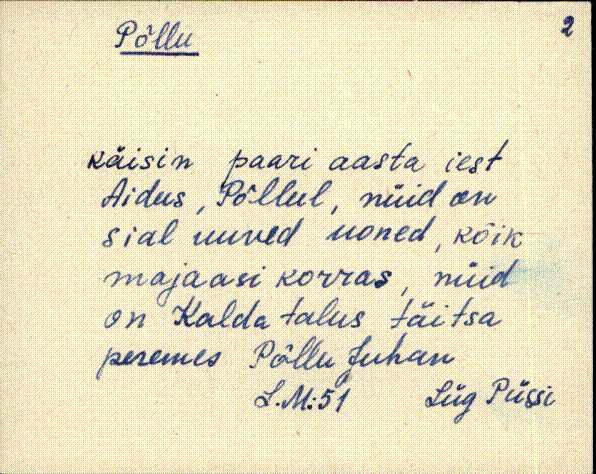 Põllu
2
käisin paari aasta iest
Aidus, Põllul, nüid on
sial uuved uoned, kõik
majaasi korras, nüid
on Kalda talus täitsa
peremes Põllu Juhan
L.M:51 Lüg Püssi